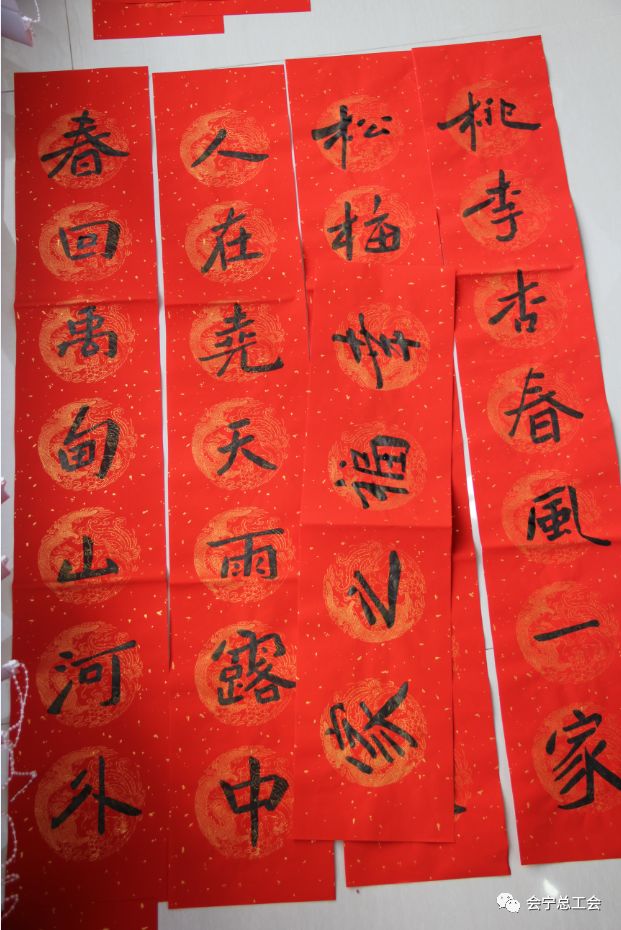 春回禹甸山河外
人在堯天雨露中
松梅
幸福之家
桃李杏春風一家
会宁总工会